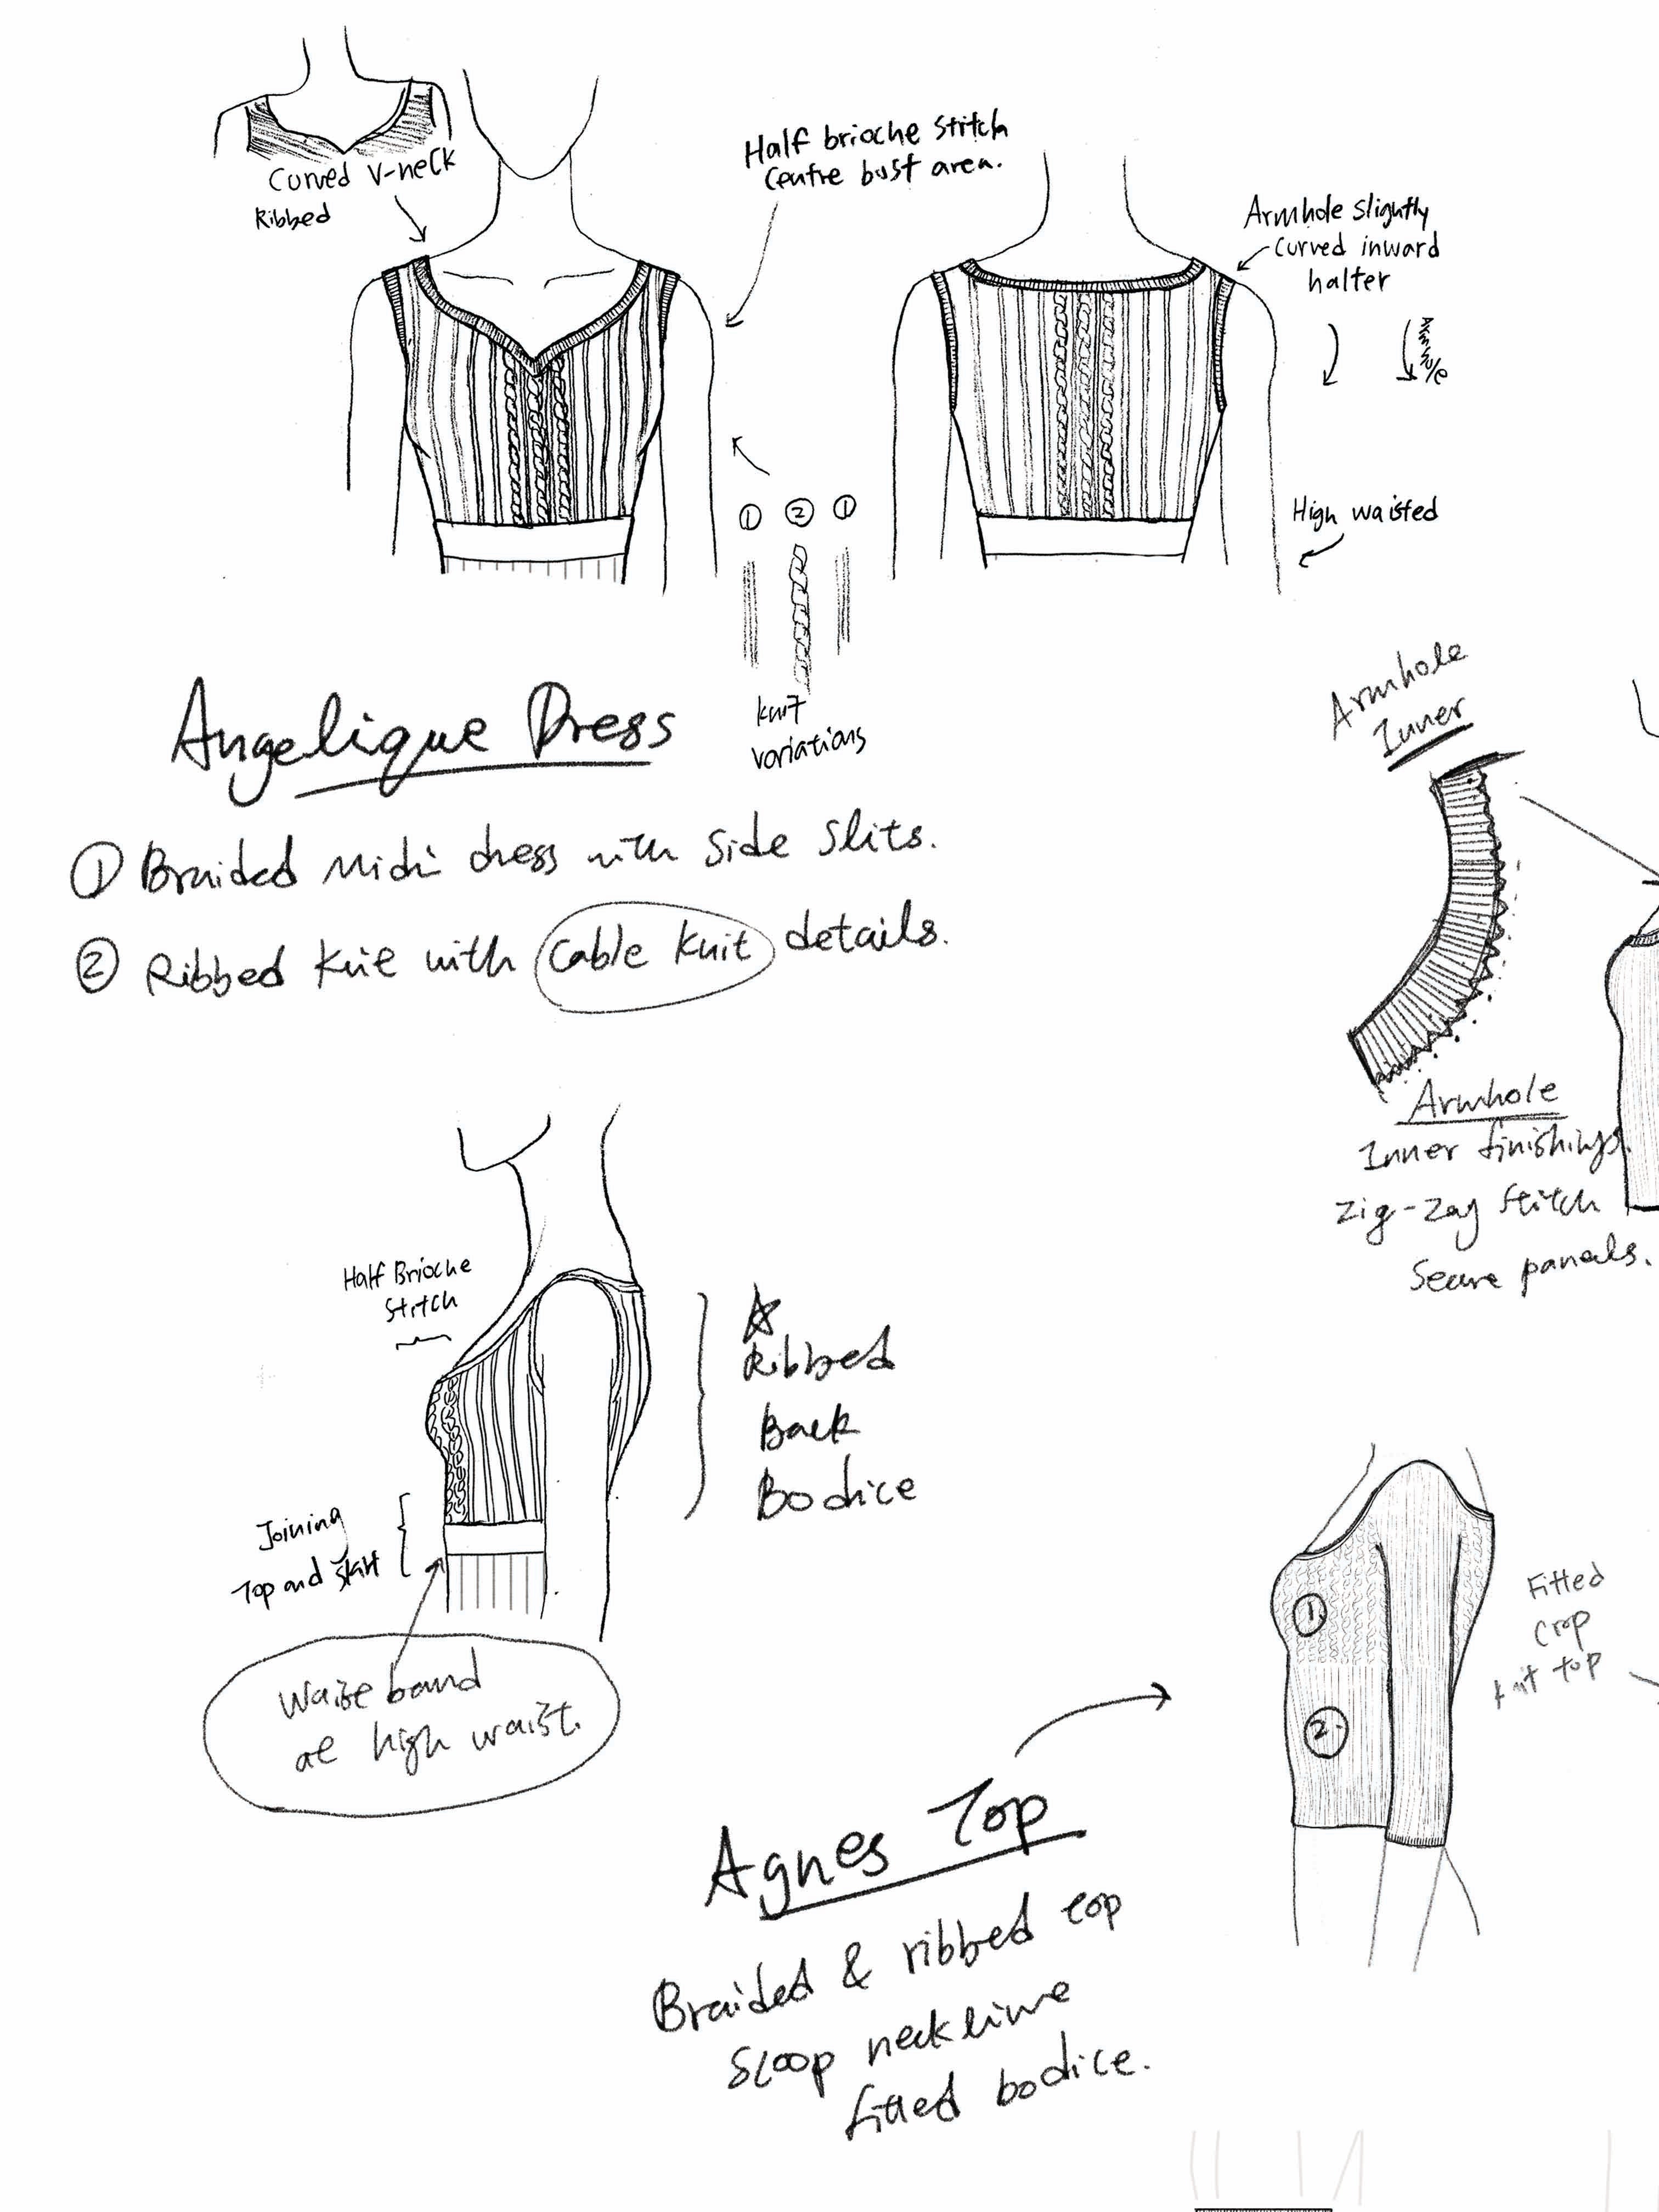 Curved V-neck
Ribbed
Half brioche stitch
Centre bust area.
Armhole slightly
curved inward
halter
Armhole
High waisted
① ② ①
knit
variations
Angelique Dress
① Braided Midi dress with side slits.
② Ribbed knit with cable knit details.
Armhole
Inner
Armhole
Inner finishings.
Zig-zag stitch
Secure panels.
Half Brioche
Stitch
Ribbed
Back
Bodice
Joining
Top and skirt
Waist band
at high waist.
①
②
Fitted
crop
knit top
Agnes Top
Braided & ribbed top
Scoop neckline
fitted bodice.